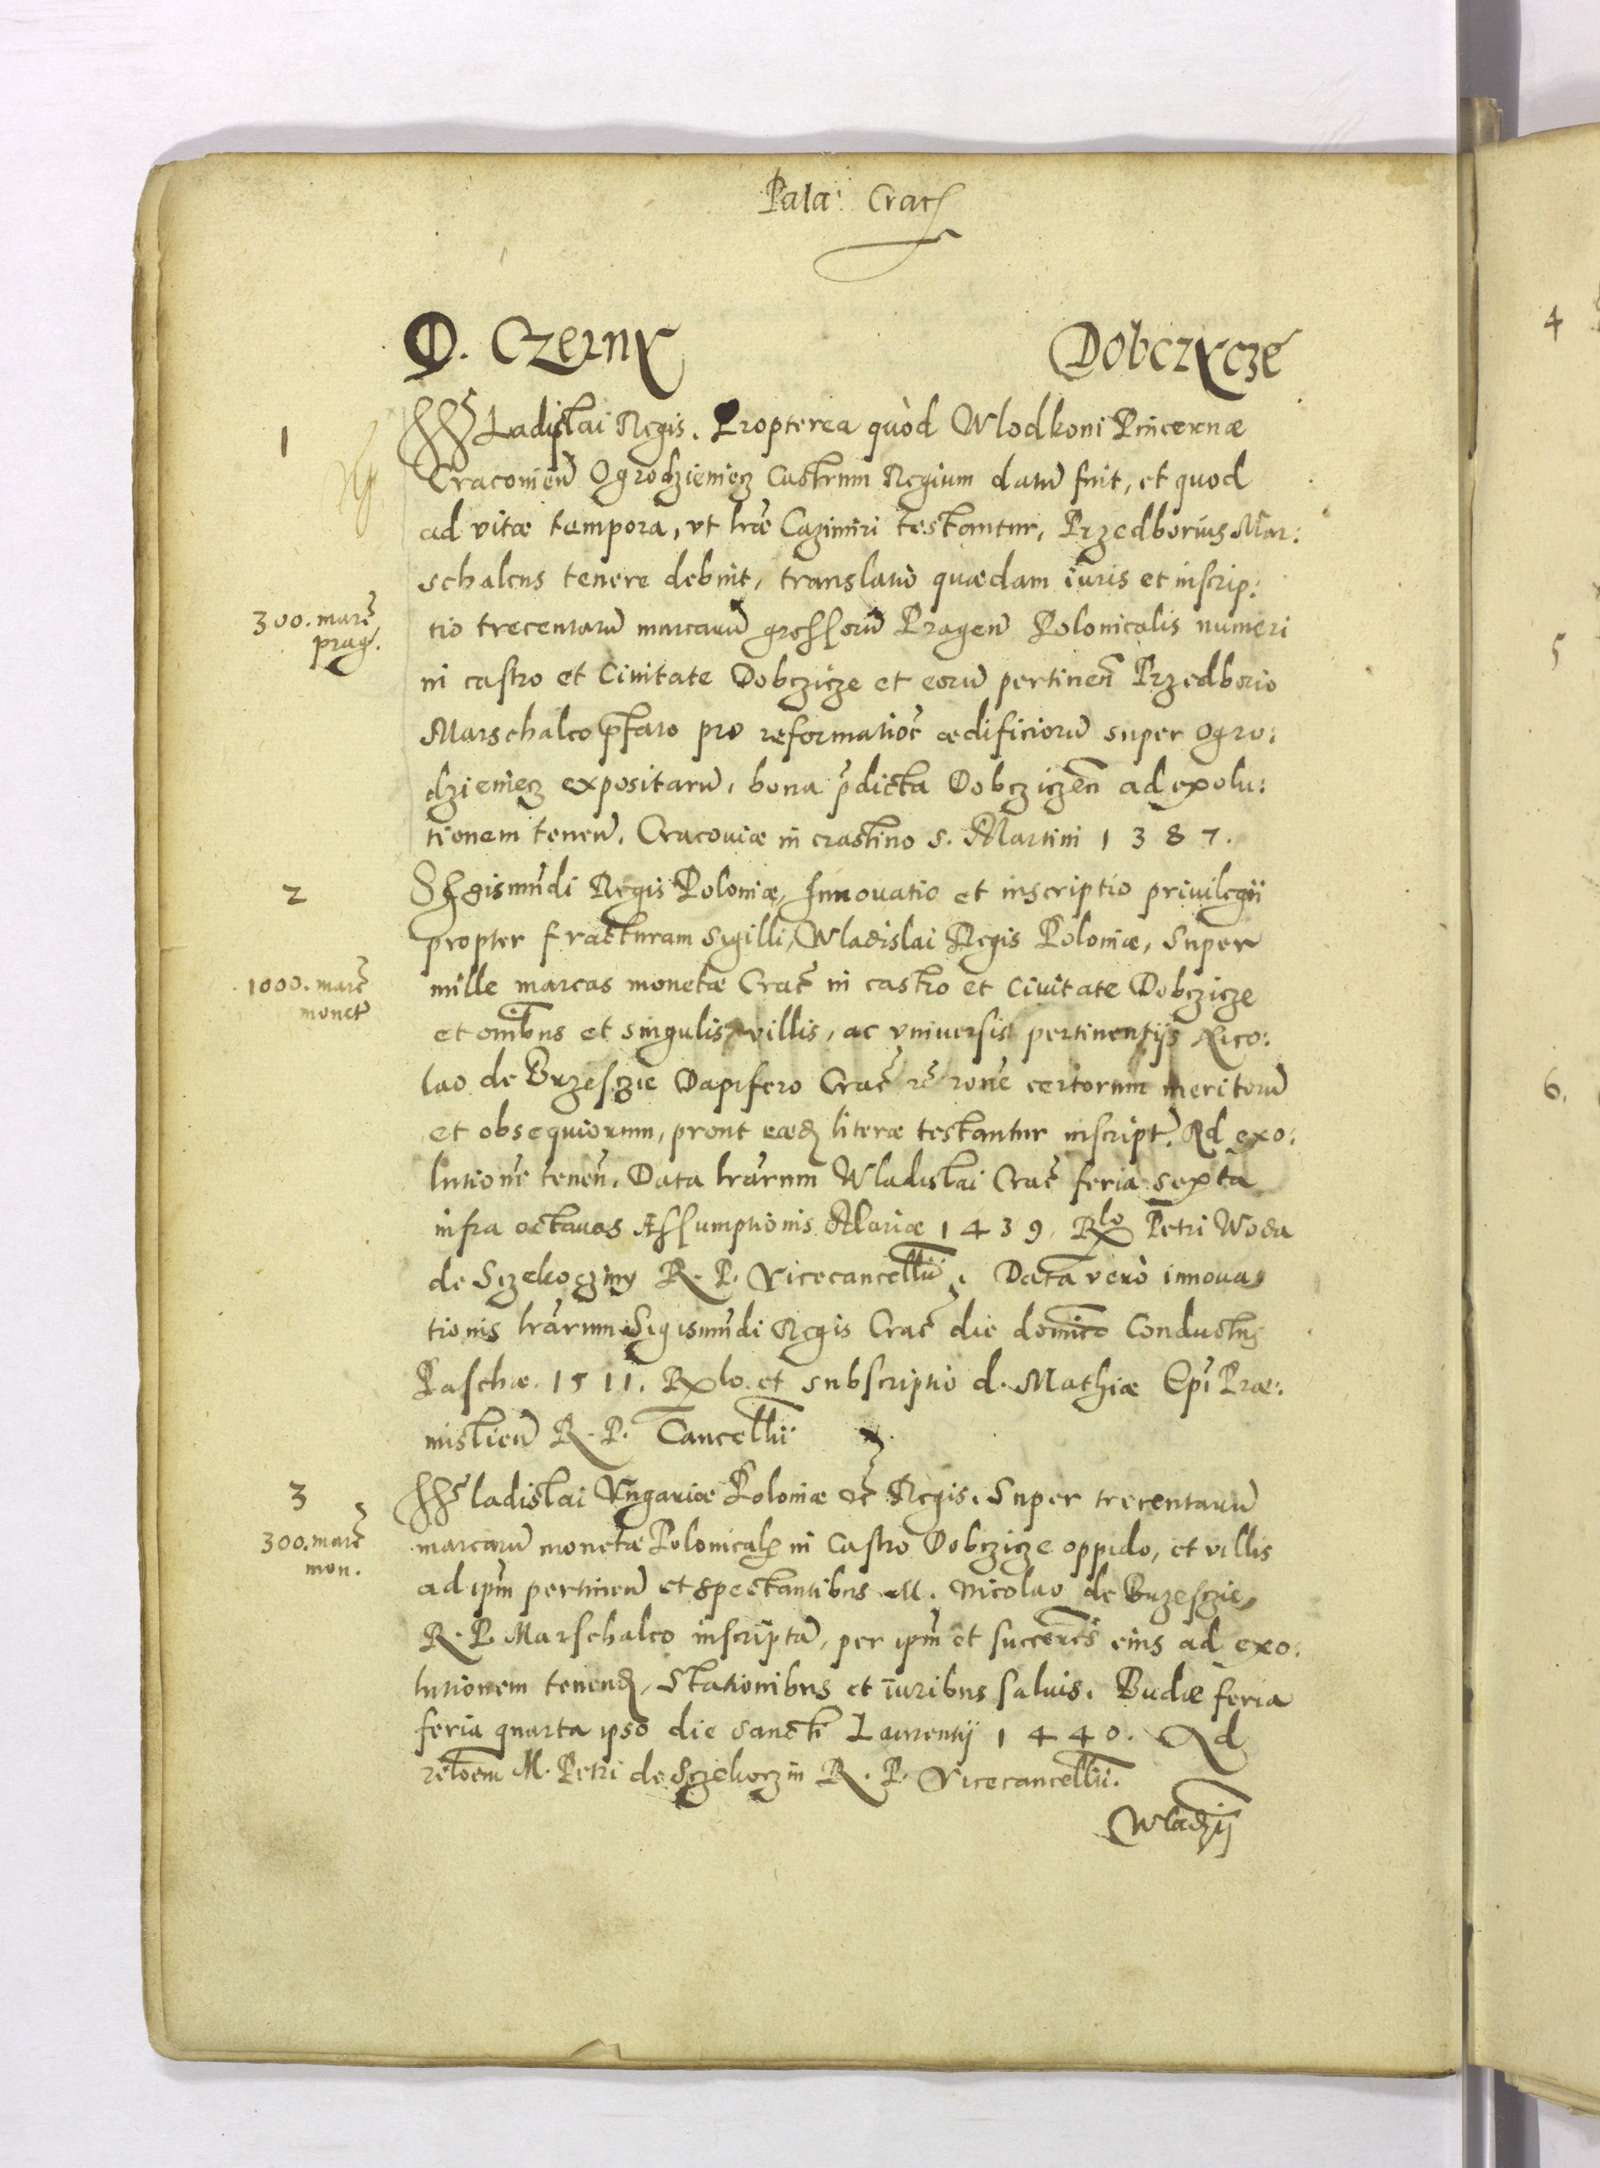 Pala: Crac
D. Czerny
Dobczycze
1
Wladislai Regis. Propterea quòd Wlodkoni Pincernæ
Cracovien̄ Ogrodzieniecz Castrum Regium datū fuit, et quod
ad vitæ tempora, vt lr̄æ Cazimiri testantur, Przedborius Mar:
schalcus tenere debuit, translatio quædam iuris et inscrip:
300. marc̄
prag.
tio trecentarū marcarū grossorū Pragen̄ Polonicalis numeri
in castro et Civitate Dobczicze et eorū pertinen̄ Przedborio
Marschalco p̄fato pro reformatiōe ædificiorū super Ogro:
dzieniecz expositarū, bona p̄dicta Dobcziczen̄ ad exolu:
tionem tenen̄. Cracoviæ in crastino S. Martini 1387.
2
Sigismūdi Regis Poloniæ, Innovatio et inscriptio privilegii
propter fracturam Sigilli, Wladislai Regis Poloniæ, Super
1000. marc̄
monet̄
mille marcas monetæ Crac̄ in castro et Civitate Dobczicze
et om̄ibus et singulis villis, ac vniversis pertinentijs Nico:
lao de Brzesczie Dapifero Crac̄ rōne certorum meritorū
et obsequiorum, prout eæd literæ testantur inscript̄. Ad exo:
lutionē tenen̄. Data lr̄arum Wladislai Crac̄ feria sexta
infra octavas Assumptionis Mariæ 1439. Rlo Petri Woda
de Sczekocziny R. P. Vicecancellii. Data verò innova,
tionis lr̄arum Sigismūdi Regis Crac̄ die domico Conductus
Paschæ. 1511. Rlo. et subscriptio d. Mathiæ Epī Præ:
mislien̄ R. P. Cancellii
3
Wladislai Vngariæ Poloniæ etc̄ Regis. Super trecentarū
300. marc̄
mon.
marcarū monetæ Polonical in Castro Dobczicze oppido, et villis
ad ipm̄ pertinen̄ et spectantibus M. Nicolao de Brzesczie,
R. P. Marschalco inscripta, per ipm̄ et succores̄ eius ad exo:
lutionem tenend, Stationibus et iuribus salvis. Budæ feria
feria quarta ipso die Sancti Laurentij 1440. Ad
retoem M. Petri de Sczekoczin R. P. Vicecancellii.
Wladij
4
5
6.